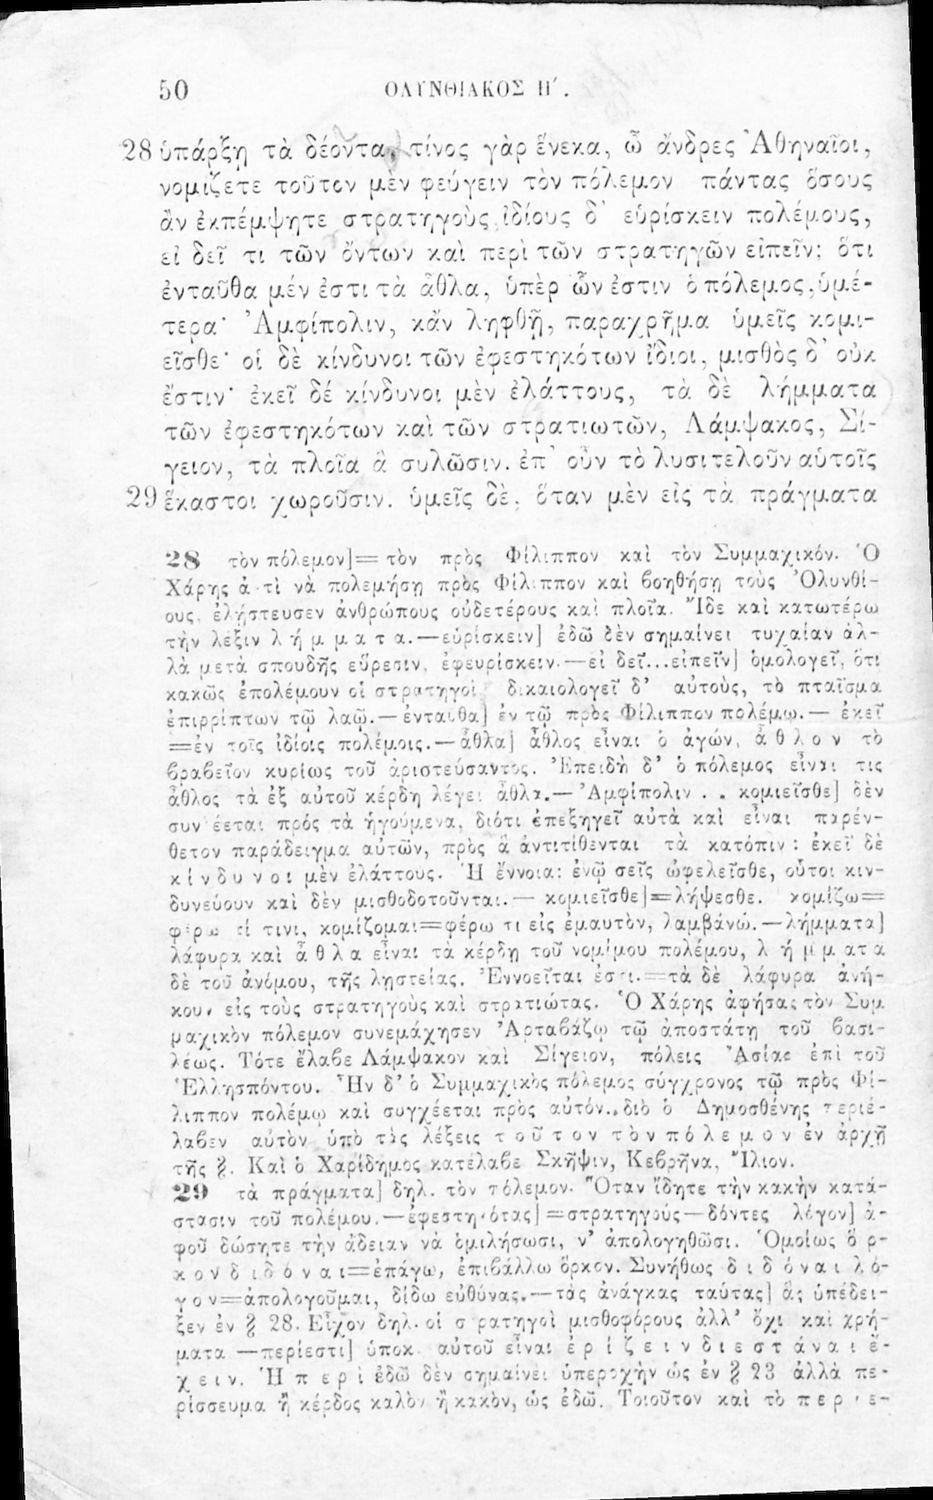 50 ΟΛΥΝΘΙΑΚΟΣ Η΄.
28 ὑπάρξῃ τὰ δέοντα, τίνος γὰρ ἕνεκα, ὦ ἄνδρες Ἀθηναῖοι,
νομίζετε τοῦτον μὲν φεύγειν τὸν πόλεμον πάντας ὅσους
ἂν ἐκπέμψητε στρατηγοὺς, ἰδίους δ᾿ εὑρίσκειν πολέμους,
εἰ δεῖ τι τῶν ὄντων καὶ περὶ τῶν στρατηγῶν εἰπεῖν; ὅτι
ἐνταῦθα μέν ἐστι τὰ ἆθλα, ὑπὲρ ὧν ἐστιν ὁ πόλεμος, ὑμέ-
τερα· Ἀμφίπολιν, κἂν ληφθῇ, παραχρῆμα ὑμεῖς κομι-
εῖσθε· οἱ δὲ κίνδυνοι τῶν ἐφεστηκότων ἴδιοι, μισθὸς δ᾿ οὐκ
ἔστιν· ἐκεῖ δέ κίνδυνοι μὲν ἐλάττους, τὰ δὲ λήμματα
τῶν ἐφεστηκότων καὶ τῶν στρατιωτῶν, Λάμψακος, Σί-
γειον, τὰ πλοῖα ἃ συλῶσιν. ἐπ᾿ οὖν τὸ λυσιτελοῦν αὑτοῖς
29 ἕκαστοι χωροῦσιν. ὑμεῖς δὲ, ὅταν μὲν εἰς τὰ πράγματα
28 τὸν πόλεμον]= τὸν πρὸς Φίλιππον καὶ τὸν Συμμαχικόν. Ὁ
Χάρης ἀντὶ νὰ πολεμήσῃ πρὸς Φίλιππον καὶ βοηθήσῃ τοὺς Ὀλυνθί-
ους, ἐλῄστευσεν ἀνθρώπους οὐδετέρους καὶ πλοῖα. Ἴδε καὶ κατωτέρω
τὴν λέξιν λήμματα.—εὑρίσκειν] ἐδῶ δὲν σημαίνει τυχαίαν ἀλ-
λὰ μετὰ σπουδῆς εὕρεσιν, ἐφευρίσκειν.—εἰ δεῖ...εἰπεῖν] ὁμολογεῖ, ὅτι
κακῶς ἐπολέμουν οἱ στρατηγοὶ, δικαιολογεῖ δ᾿ αὐτοὺς, τὸ πταῖσμα
ἐπιρρίπτων τῷ λαῷ.—ἐνταῦθα] ἐν τῷ πρὸς Φίλιππον πολέμῳ.— ἐκεῖ
=ἐν τοῖς ἰδίοις πολέμοις.—ἆθλα] ἆθλος εἶναι ὁ ἀγών, ἆθλον τὸ
βραβεῖον κυρίως τοῦ ἀριστεύσαντος. Ἐπειδὴ δ᾿ ὁ πόλεμος εἶναι τις
ἆθλος τὰ ἐξ αὐτοῦ κέρδη λέγει ἆθλα.—Ἀμφίπολιν . . κομιεῖσθε] δὲν
συνδέεται πρός τὰ ἡγούμενα, διότι ἐπεξηγεῖ αὐτὰ καὶ εἶναι παρέν-
θετον παράδειγμα αὐτῶν, πρὸς ἃ ἀντιτίθενται τὰ κατόπιν : ἐκεῖ δὲ
κίνδυνοι μὲν ἐλάττους. Ἡ ἔννοια: ἐνῷ σεῖς ὠφελεῖσθε, οὗτοι κιν-
δυνεύουν καὶ δὲν μισθοδοτοῦνται.— κομιεῖσθε]=λήψεσθε. κομίζω=
φέρω τί τινι, κομίζομαι=φέρω τι εἰς ἐμαυτὸν, λαμβάνω.—λήμματα]
λάφυρα καὶ ἆθλα εἶναι τὰ κέρδη τοῦ νομίμου πολέμου, λήμματα
δὲ τοῦ ἀνόμου, τῆς λῃστείας. Ἐννοεῖται ἐστι.=τὰ δὲ λάφυρα ἀνή-
κουν εἰς τοὺς στρατηγοὺς καὶ στρατιώτας. Ὁ Χάρης ἀφήσας τὸν Συμ
μαχικὸν πόλεμον συνεμάχησεν Ἀρταβάζῳ τῷ ἀποστάτῃ τοῦ βασι-
λέως. Τότε ἔλαβε Λάμψακον καὶ Σίγειον, πόλεις Ἀσίας ἐπὶ τοῦ
Ἑλλησπόντου. Ἦν δ᾿ ὁ Συμμαχικὸς πόλεμος σύγχρονος τῷ πρὸς Φί-
λιππον πολέμῳ καὶ συγχέεται πρὸς αὐτόν., διὸ ὁ Δημοσθένης περιέ-
λαβεν αὐτὸν ὑπὸ τὰς λέξεις τοῦτον τὸν πόλεμον ἐν ἀρχῇ
τῆς §. Καὶ ὁ Χαρίδημος κατέλαβε Σκῆψιν, Κεβρῆνα, Ἴλιον.
29 τὰ πράγματα] δηλ. τὸν πόλεμον. Ὅταν ἴδητε τὴν κακὴν κατά-
στασιν τοῦ πολέμου.—ἐφεστηκότας]=στρατηγούς—δόντες λόγον] ἀ-
φοῦ δώσητε τὴν ἄδειαν νὰ ὁμιλήσωσι, ν᾿ ἀπολογηθῶσι. Ὁμοίως ὅρ-
κον διδόναι=ἐπάγω, ἐπιβάλλω ὅρκον. Συνήθως διδόναι λό-
γον=ἀπολογοῦμαι, δίδω εὐθύνας.—τὰς ἀνάγκας ταύτας] ἃς ὑπέδει-
ξεν ἐν § 28. Εἶχον δηλ. οἱ στρατηγοὶ μισθοφόρους ἀλλ᾿ ὄχι καὶ χρή-
ματα —περίεστι] ὑποκ. αὐτοῦ εἶναι ἐρίζειν διεστάναι ἔ-
χειν. Ἡ περὶ ἐδῶ δὲν σημαίνει ὑπεροχὴν ὡς ἐν § 23 ἀλλὰ πε-
ρίσσευμα ἢ κέρδος καλὸν ἢ κακὸν, ὡς ἐδῶ. Τοιοῦτον καὶ τὸ περιε-